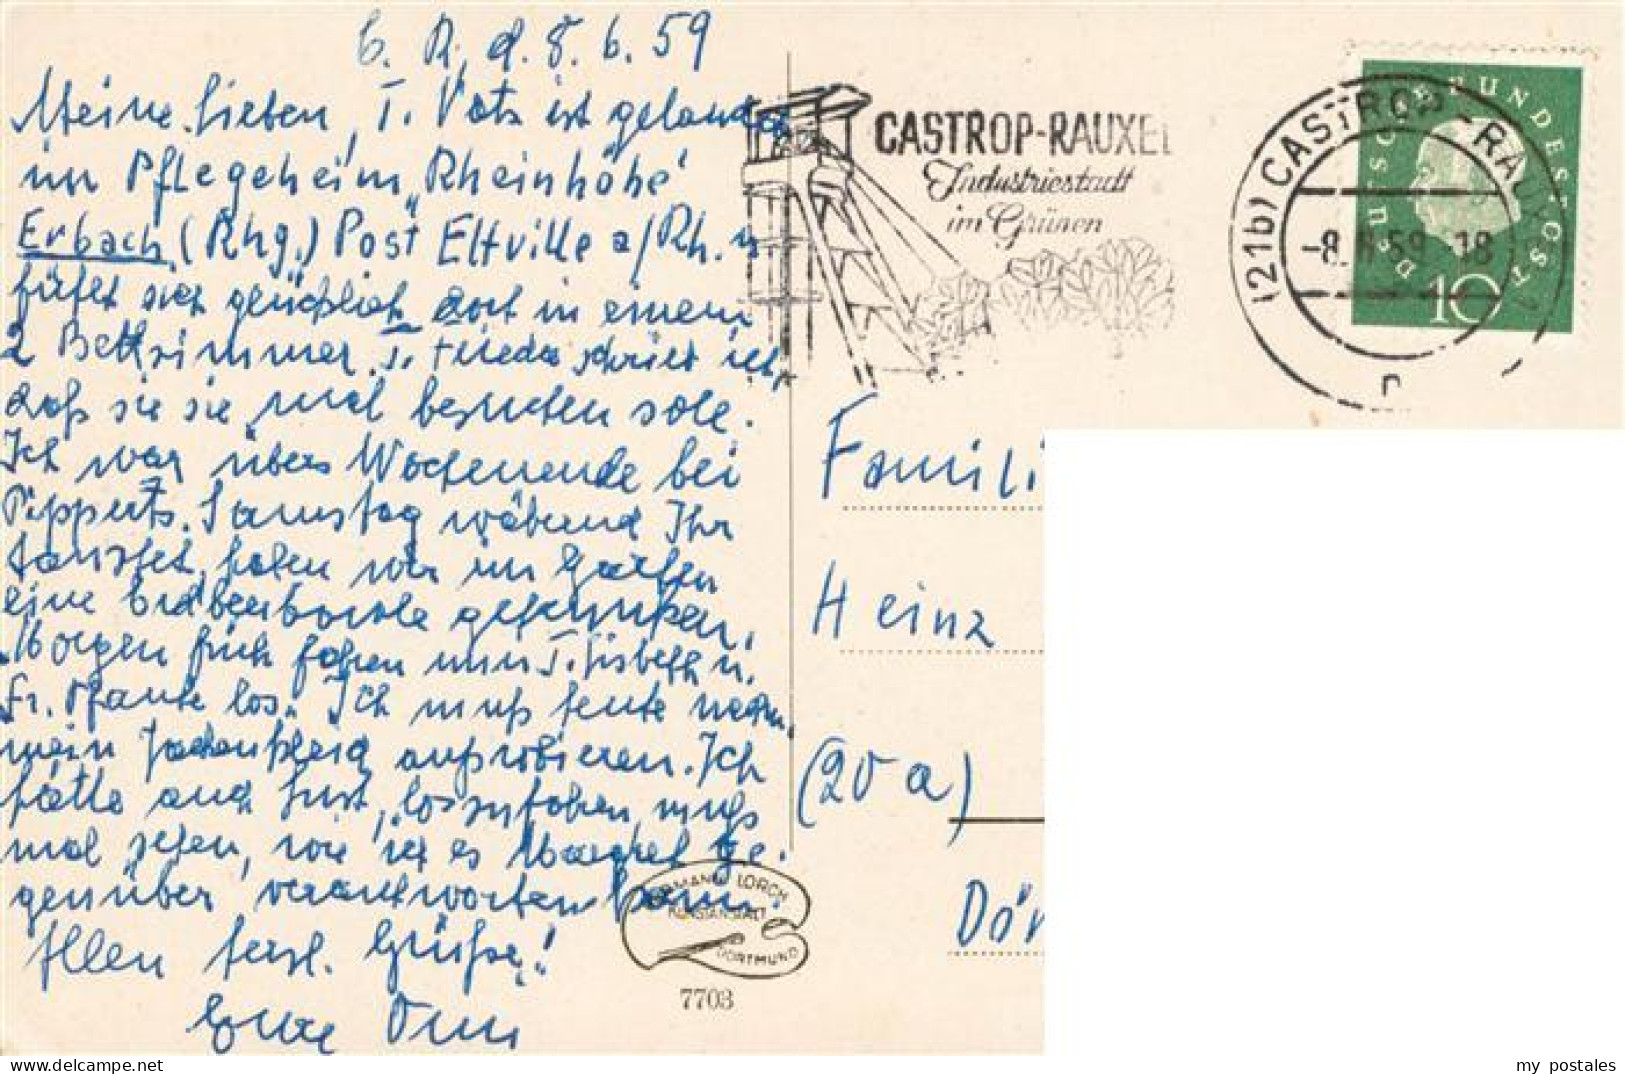 C. R. d. 8. 6. 59
Meine Lieben, T. Vots ist gelandet
im Pflegeheim "Rheinhöhe"
Erbach (Rhg.) Post Eltville a/Rh. u.
fühlt sich glücklich dort in einem
2 Bettzimmer. T. Frieda schrieb ich,
daß sie sie mal besuchen solle.
Ich war übers Wochenende bei
Pipperts. Samstag während Ihr
tanztet, haben wir im Garten
eine Erdbeerbowle getrunken.
Morgen früh fahren nun T. Lisbeth u.
Fr. Pfante los. Ich muß heute nachm.
mein Jackenkleid anprobieren. Ich
hätte auch Lust, loszufahren, muß
mal sehen, wie ich es Margret ge-
genüber verantworten kann.
Allen herzl. Grüße!
Eure Omi
CASTROP-RAUXEL
Industriestadt
im Grünen
(21b) CASTROP-RAUXEL
-8. 6. 59 -18
DEUTSCHE BUNDESPOST
10
Famili
Heinz
(20a)
Dör
HERMANN LORCH
KUNSTANSTALT
DORTMUND
7703
my postales